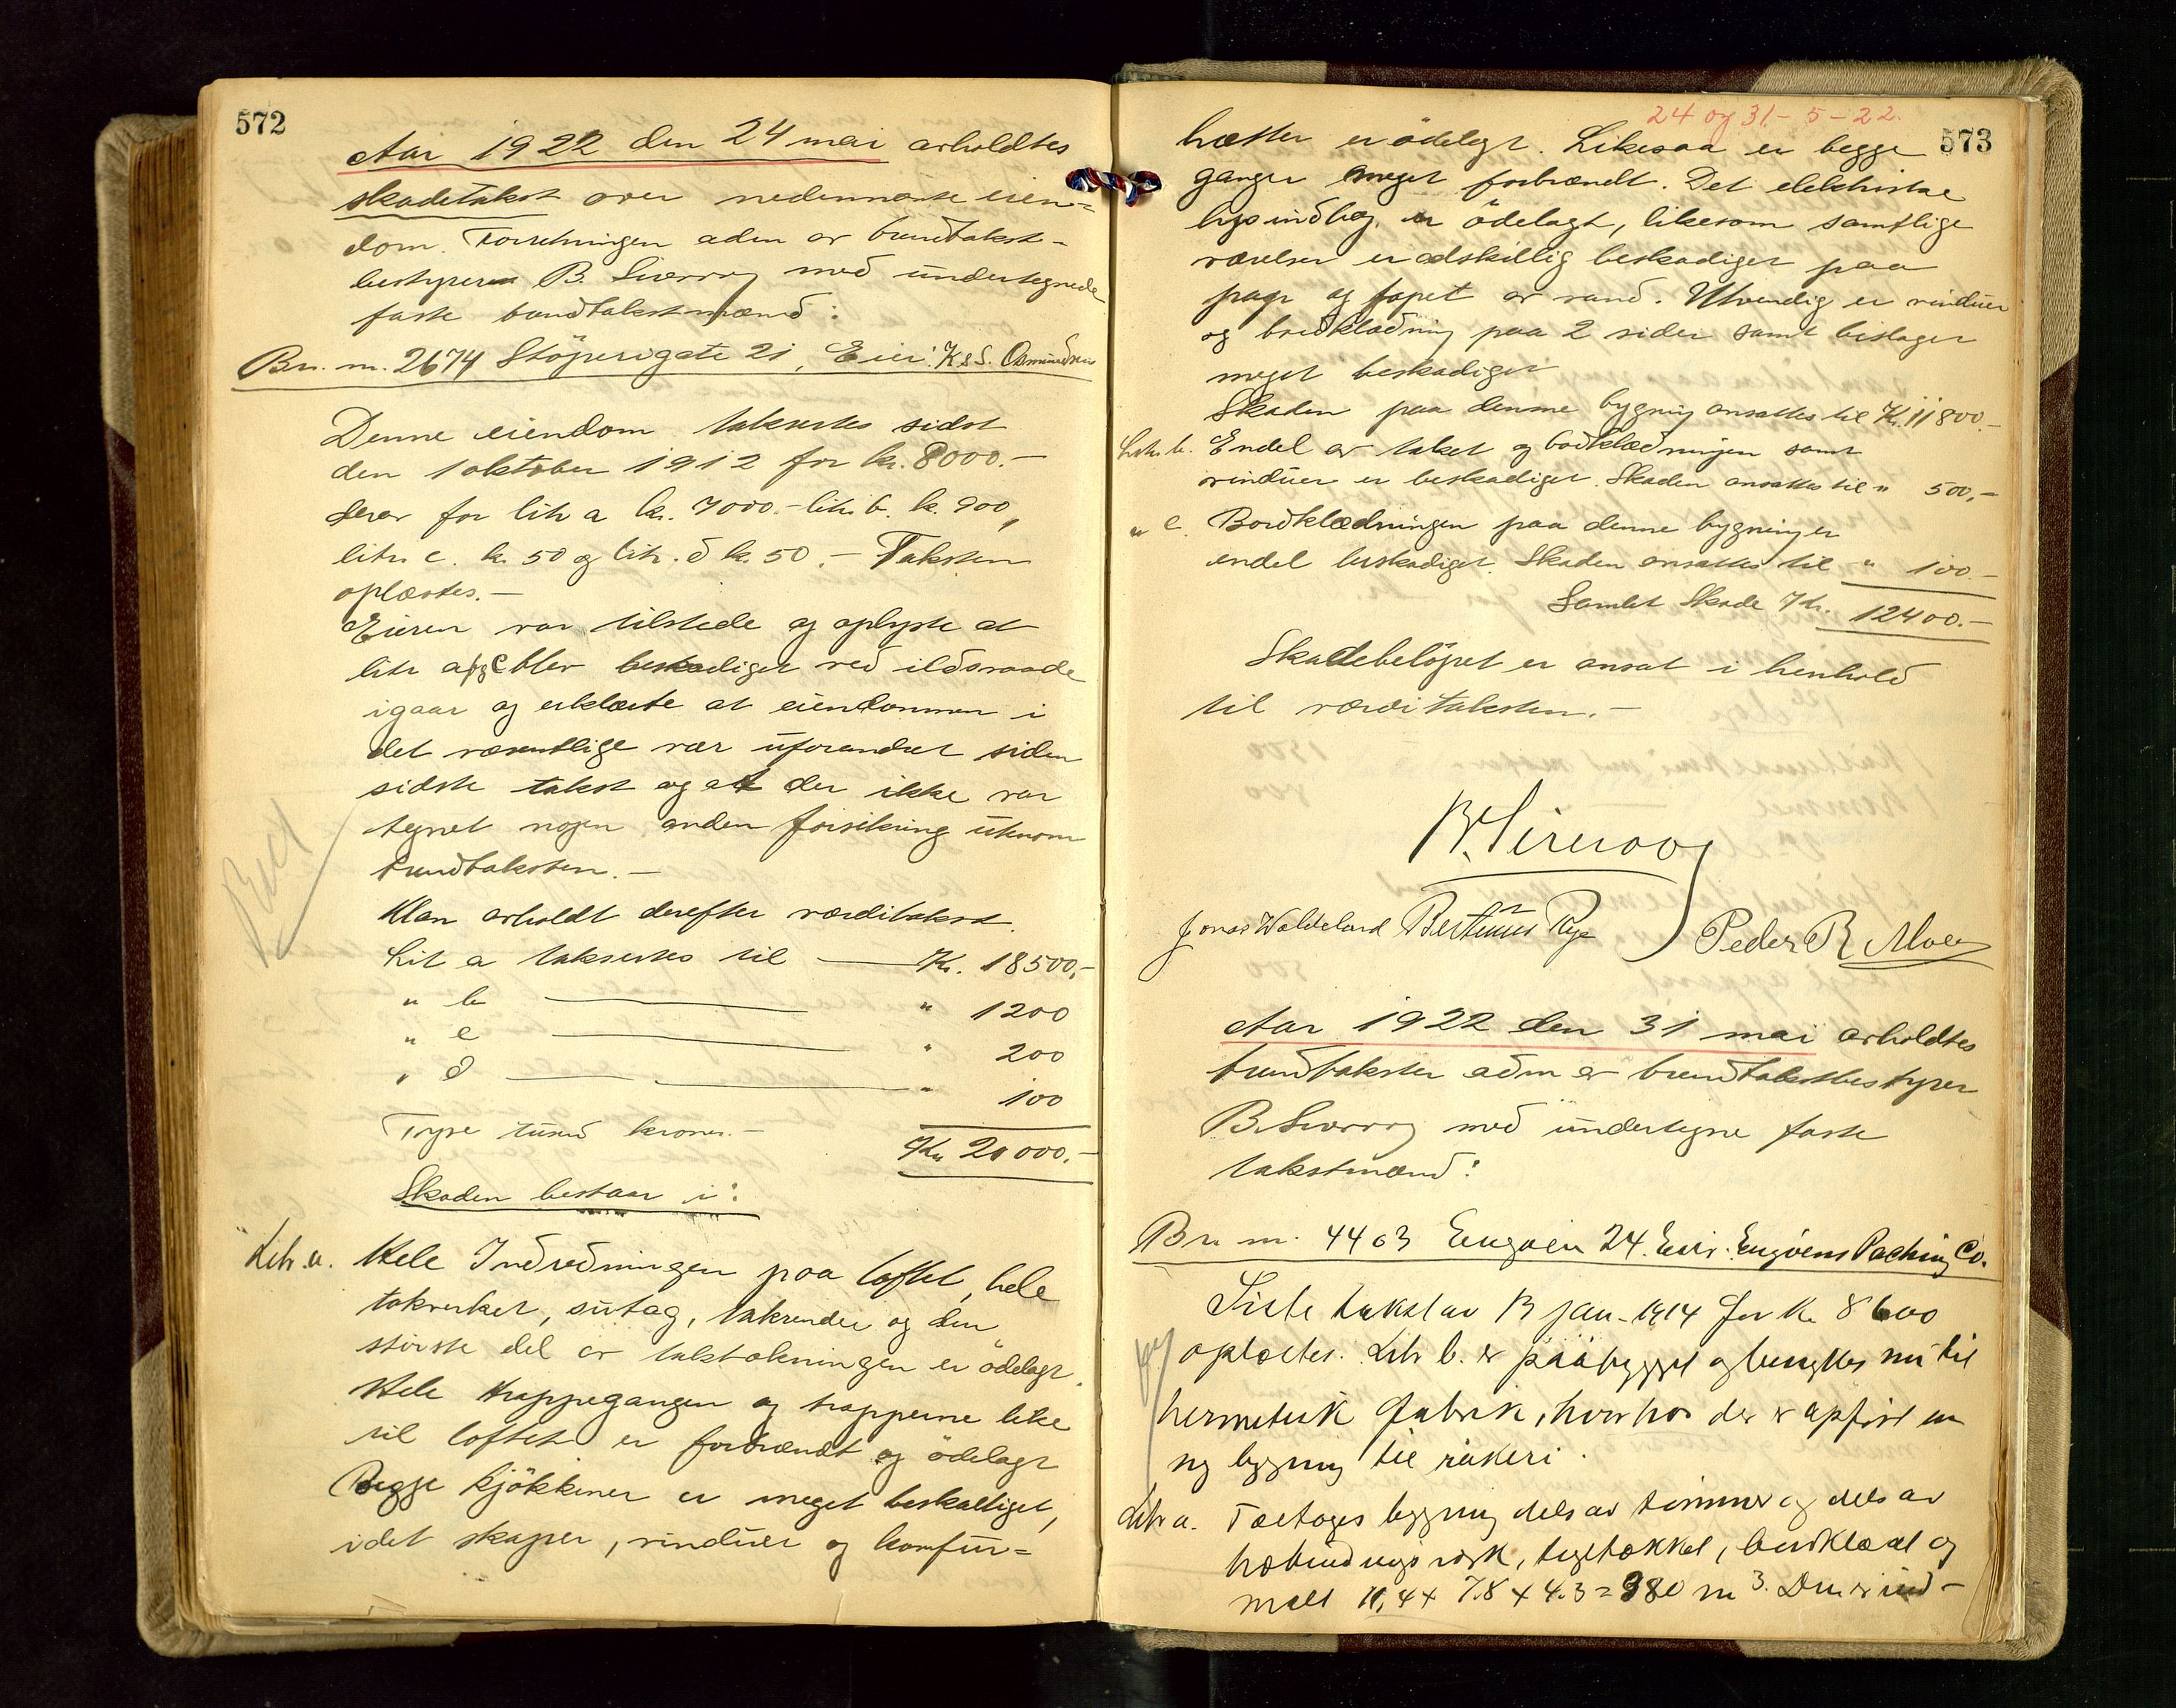 572
Aar 1922 den 24 mai avholdtes
skadetakst over nedennævnte eien=
dom. Forretningen adm av brandtakst-
bestyreren B. Sirevaag med undertegnede
faste brandtakstmænd:
Br. nr. 2674 Støperigate 21, Eier: K & S. Osmundsen
Denne eiendom takseres sidst
den 1 oktober 1912 for kr. 8000.-
derav for litr a kr. 7000.- litr. b. kr. 900,
litr. c. kr. 50 og litr. d kr. 50.- Taksten
oplæstes.-
Eieren var tilstede og oplyste at
litr a b og c blev beskadiget ved ildsvaade
igaar og erklærte at eiendommen i
det væsentlige var uforandret siden
sidste takst og at der ikke var
tegnet nogen anden forsikring utenom
brandtaksten.-
Man avholdt derefter værditakst.
Lit a takseres til Kr. 18500,-
" b " 1200
" c " 200
" d " 100
Tyve tusend kroner.- Kr 20000.-
Skaden bestaar i:
Litr. a. Hele Indredningen paa loftet, hele
takverket, sutag, takrender og den
største del av taktækningen er ödelagt.
Hele trappegangen og trapperne like
til loftet er forbrændt og ödelagt
Begge kjökkener er meget beskadiget,
idet skaper, vinduer og komfur=
24 og 31 - 5 - 22.
573
hætter er ödelagt. Likesaa er begge
ganger meget forbrændt. Det elektriske
lysindlæg. er ödelagt, likesom samtlige
værelser er adskillig beskadiget paa
papp og tapet av vand. Utvendig er vinduer
og bordklædning paa 2 sider samt beslager
meget beskadiget
Skaden paa denne bygning ansættes til Kr. 11800.-
Litr. b. Endel av taket og bordklædningen samt
vinduer er beskadiget. Skaden ansættes til " 500,-
" c. Bordklædningen paa denne bygning er
endel beskadiget. Skaden ansættes til " 100.-
Samlet Skade Kr. 12400.-
Skadebelöpet er ansat i henhold
til værditaksten.-
B. Sirevaag
Jonas Waldeland Bertinus Rege Peder R Moe
Aar 1922 den 31 mai avholdtes
brandtakster adm av brandtakstbestyrer
B. Sirevaag med undertegne faste
takstmænd:
Br. nr. 4403 Engøen 24. Eier: Engøens Packing Co.
Siste takst av 13 jan. 1914 for Kr. 8600
oplæstes. Litr b. er pååbygget og benyttes nu til
hermetisk fabrik, hvorhos der er opført en
ny bygning til røkeri.
Litr a. Toetages bygning dels av tømmer og dels av
bindingsværk, teglstækket, bordklædd og
malt 11,4 x 7.8 x 4.3 = 380 m3. Den er ind-